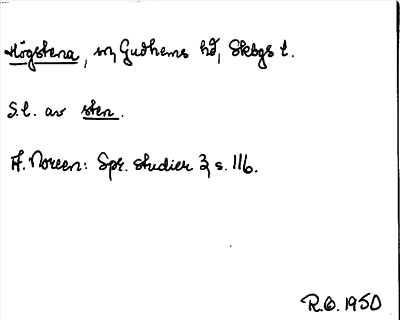 Högstena, sn, Gudhems hd, Skbgs l.
S.l. av sten.
A. Noreen: Spr. studier 3, s. 116.
R.O. 1950